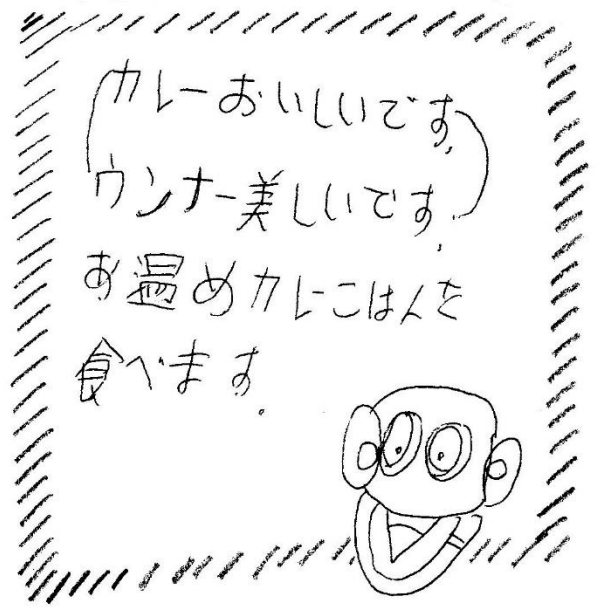 カレーおいしいです。
ウンナー美しいです。
お温めカレーごはんを
食べます。